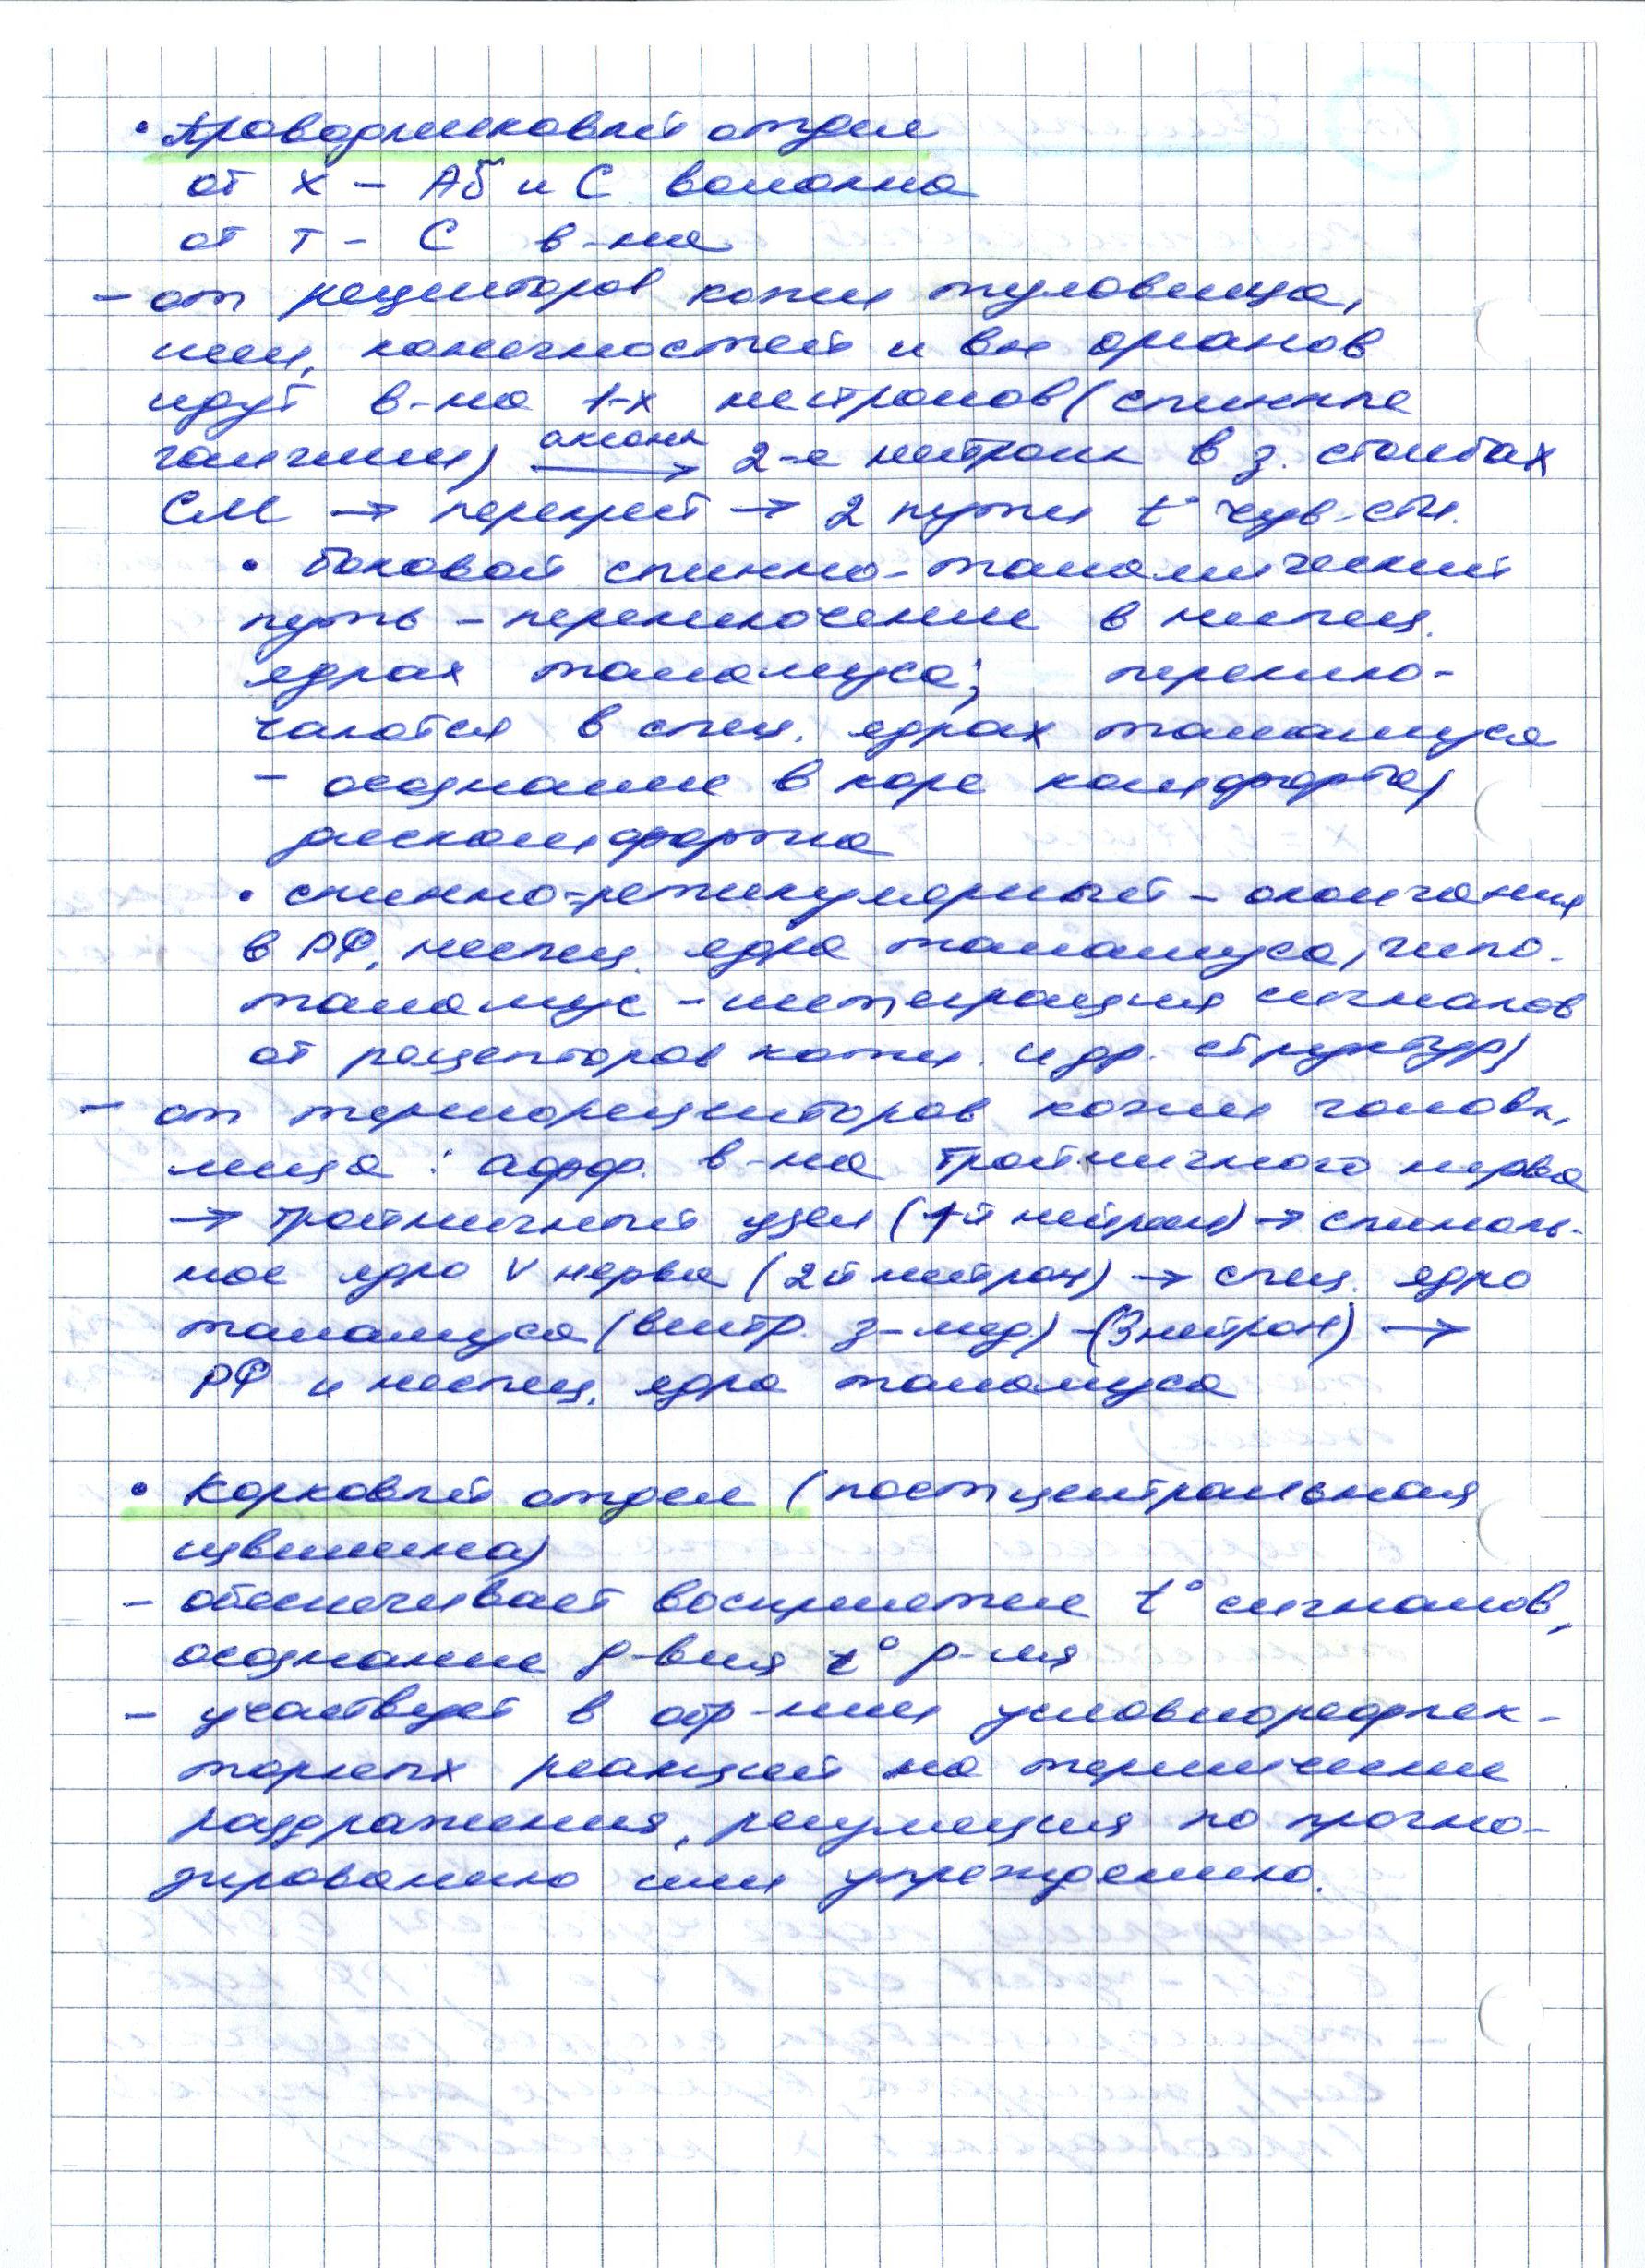 • Проводниковый отдел
от Х – Аδ и С волокна
от Т – С в-на
– от рецепторов кожи туловища,
шеи, конечностей и вн органов
идут в-на 1-х нейронов (спинные
ганглии) аксоны → 2-е нейроны в з. столбах
СМ → перекрест → 2 пути t° чув-сти.
• боковой спинно-таламический
путь – переключение в неспец.
ядрах таламуса; переклю-
чаются в спец. ядрах таламуса
– осознание в коре комфорта/
дискомфорта
• спинно-ретикулярный – окончания
в РФ, неспец. ядра таламуса, гипо-
таламус – интеграция сигналов
от рецепторов кожи и др. структур)
– от терморецепторов кожи головы,
лица: афф. в-на тройничного нерва
→ тройничный узел (1й нейрон) → спиналь-
ное ядро V нерва (2й нейрон) → спец. ядро
таламуса (вентр. з-мед.) – (3 нейрон) →
РФ и неспец. ядра таламуса
• Корковый отдел (постцентральная
извилина)
– обеспечивает восприятие t° сигналов,
осознание р-вия t° р-ля
– участвует в обр-нии условнорефлек-
торных реакций на термические
раздражения, регуляция по прогно-
зированию или упреждению.